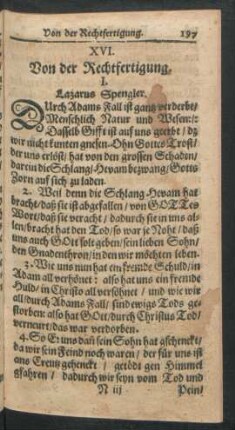 Von der Rechtfertigung. 197
XVI.
Von der Rechtfertigung.
I.
Lazarus Spengler.
DUrch Adams Fall ist gantz verderbt/
Menschlich Natur und Wesen:/:
Dasselb Gifft ist auf uns geerbt / dz
wir nicht kunten gnesen. Ohn Gottes Trost/
der uns erlöst / hat von den grossen Schadn/
darein die Schlang / Hevam bezwang / Gotts
Zorn auf sich zu laden.
2. Weil denn die Schlang Hevam hat
bracht / daß sie ist abgefallen / von GOTTes
Wort / daß sie veracht / dadurch sie in uns al-
len / bracht hat den Tod / so war je Noht / daß
uns auch GOtt solt geben / sein lieben Sohn /
den Gnadenthron / in den wir möchten leben.
3. Wie uns nun hat ein fremde Schuld / in
Adam all verhönet: also hat uns ein fremde
Huld / in Christo all versöhnet / und wie wir
all / durch Adams Fall / sind ewigs Tods ge-
storben: also hat GOtt / durch Christus Tod /
verneurt / das war verdorben.
4. So Er uns dañ sein Sohn hat gschenckt /
da wir sein Feind noch waren / der für uns ist
ans Creutz gehenckt / getödt gen Himmel
gfahren / dadurch wir seyn vom Tod und
N iij Pein/